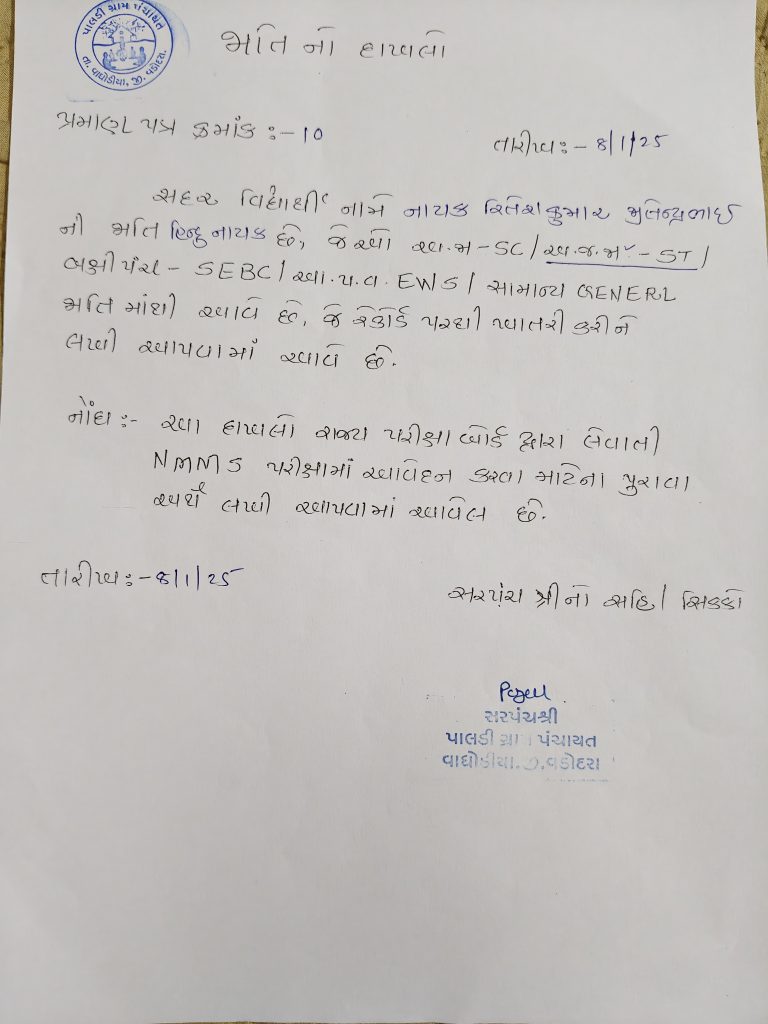 પાલડી ગ્રામ પંચાયત
તા. વાઘોડીયા, જી. વડોદરા.
જાતિ નો દાખલો
પ્રમાણ પત્ર ક્રમાંક :- 10
તારીખ :- 8/1/25
સદર વિદ્યાર્થી નામે નાયક રિતેશકુમાર જીતેન્દ્રભાઈ
ની જાતિ હિન્દુ નાયક છે, જેઓ અ.જા - SC / અ.જ.જા - ST /
બક્ષીપંચ - SEBC / આ.પ.વ. EWS / સામાન્ય GENERL
જાતિ માંથી આવે છે, જે રેકોર્ડ પરથી ખાતરી કરીને
લખી આપવામાં આવે છે.
નોંધ :- આ દાખલો રાજ્ય પરીક્ષા બોર્ડ દ્વારા લેવાતી
NMMS પરીક્ષામાં આવેદન કરવા માટેના પુરાવા
અર્થે લખી આપવામાં આવેલ છે.
તારીખ :- 8/1/25
સરપંચ શ્રીનો સહિ / સિક્કો
સરપંચશ્રી
પાલડી ગ્રામ પંચાયત
વાઘોડીયા.જી.વડોદરા